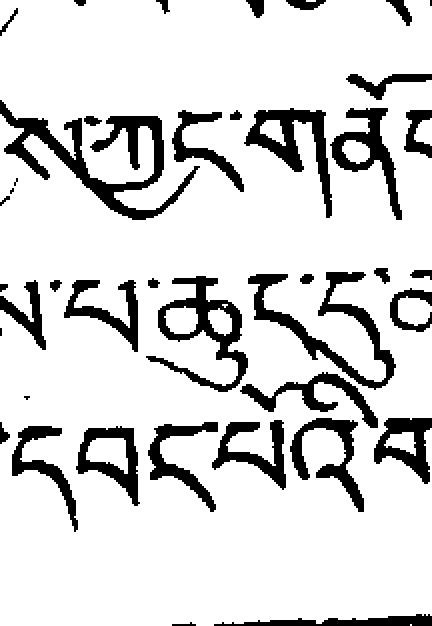 ས་ཀྱང་གནོ
ས་པ་ཆུང་ངུ་
དབང་པོའི